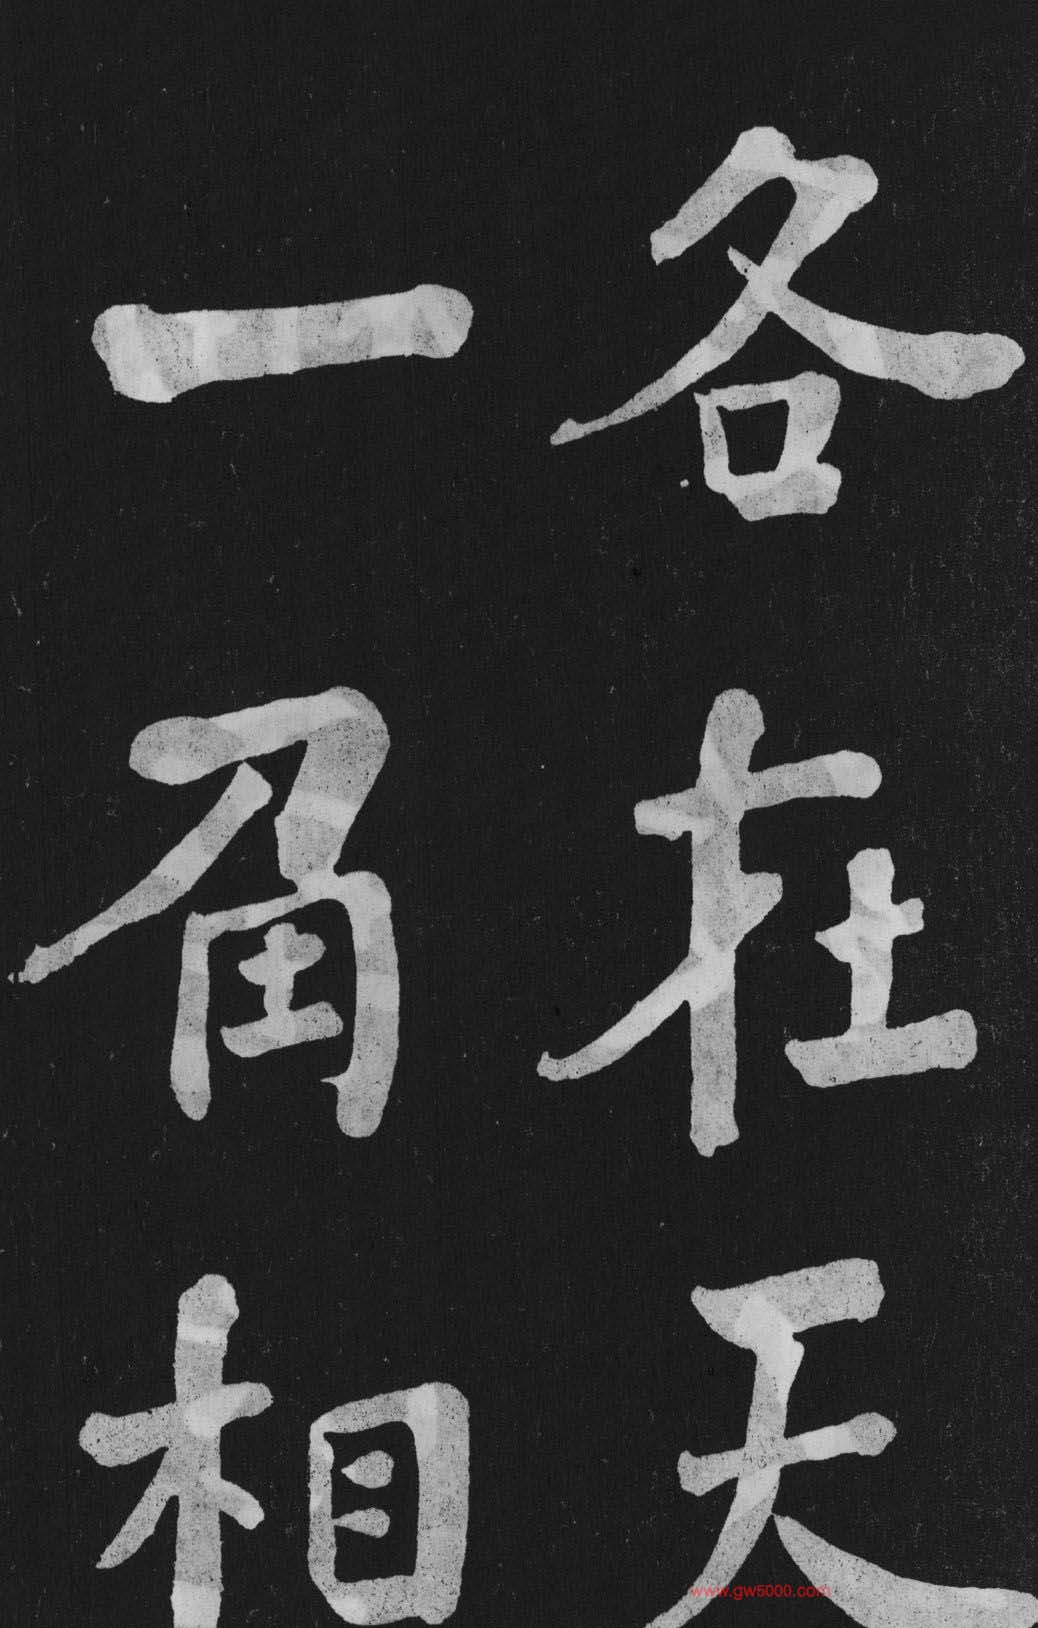 各在天
一角相
www.gw5000.com